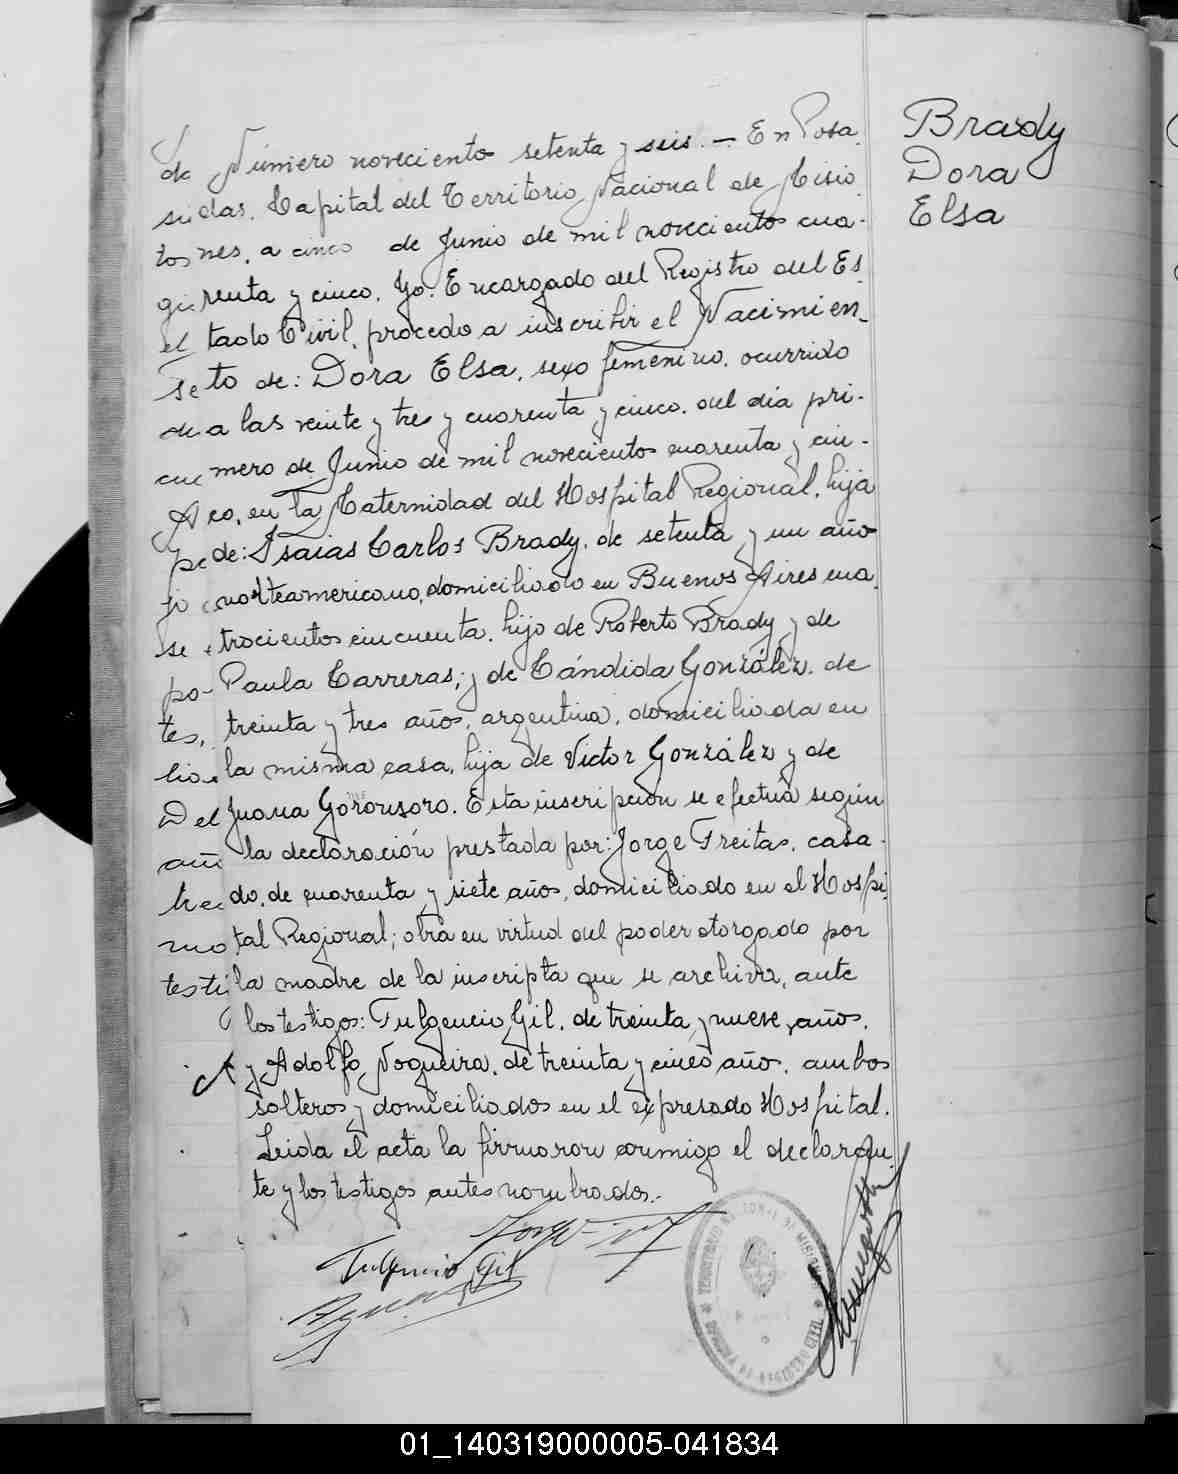 Brady
Dora
Elsa
Número novecientos setenta y seis.— En Posa
das, Capital del Territorio Nacional de Misio
nes, a cinco de Junio de mil novecientos cua-
renta y cinco. Yo: Encargado del Registro del Es
tado Civil, procedo a inscribir el Nacimien_
to de: Dora Elsa, sexo femenino, ocurrido
a las veinte y tres y cuarenta y cinco, del día pri-
mero de Junio de mil novecientos cuarenta y cin-
co, en la Maternidad del Hospital Regional, hija
de: Isaias Carlos Brady, de setenta y un año
norteamericano, domiciliado en Buenos Aires cua
trocientos cincuenta, hijo de Roberto Brady y de
Paula Carreras; y de Cándida González, de
treinta y tres años, argentina, domiciliada en
la misma casa, hija de Victor González y de
Juana. Esta inscripción se efectúa según
la declaración prestada por: Jorge Freitas, casa-
do, de cuarenta y siete años, domiciliado en el Hospi
tal Regional; obra en virtud del poder otorgado por
la madre de la inscripta que se archiva, ante
los testigos: Fulgencio Gil, de treinta y nueve años,
y Adolfo Nogueira, de treinta y cinco año, ambos
solteros y domiciliados en el expresado Hospital.
Leida el acta la firmaron conmigo el declaran
te y los testigos antes nombrados.-
Jorge
Fulgencio Gil
REGISTRO CIVIL
01_140319000005-041834